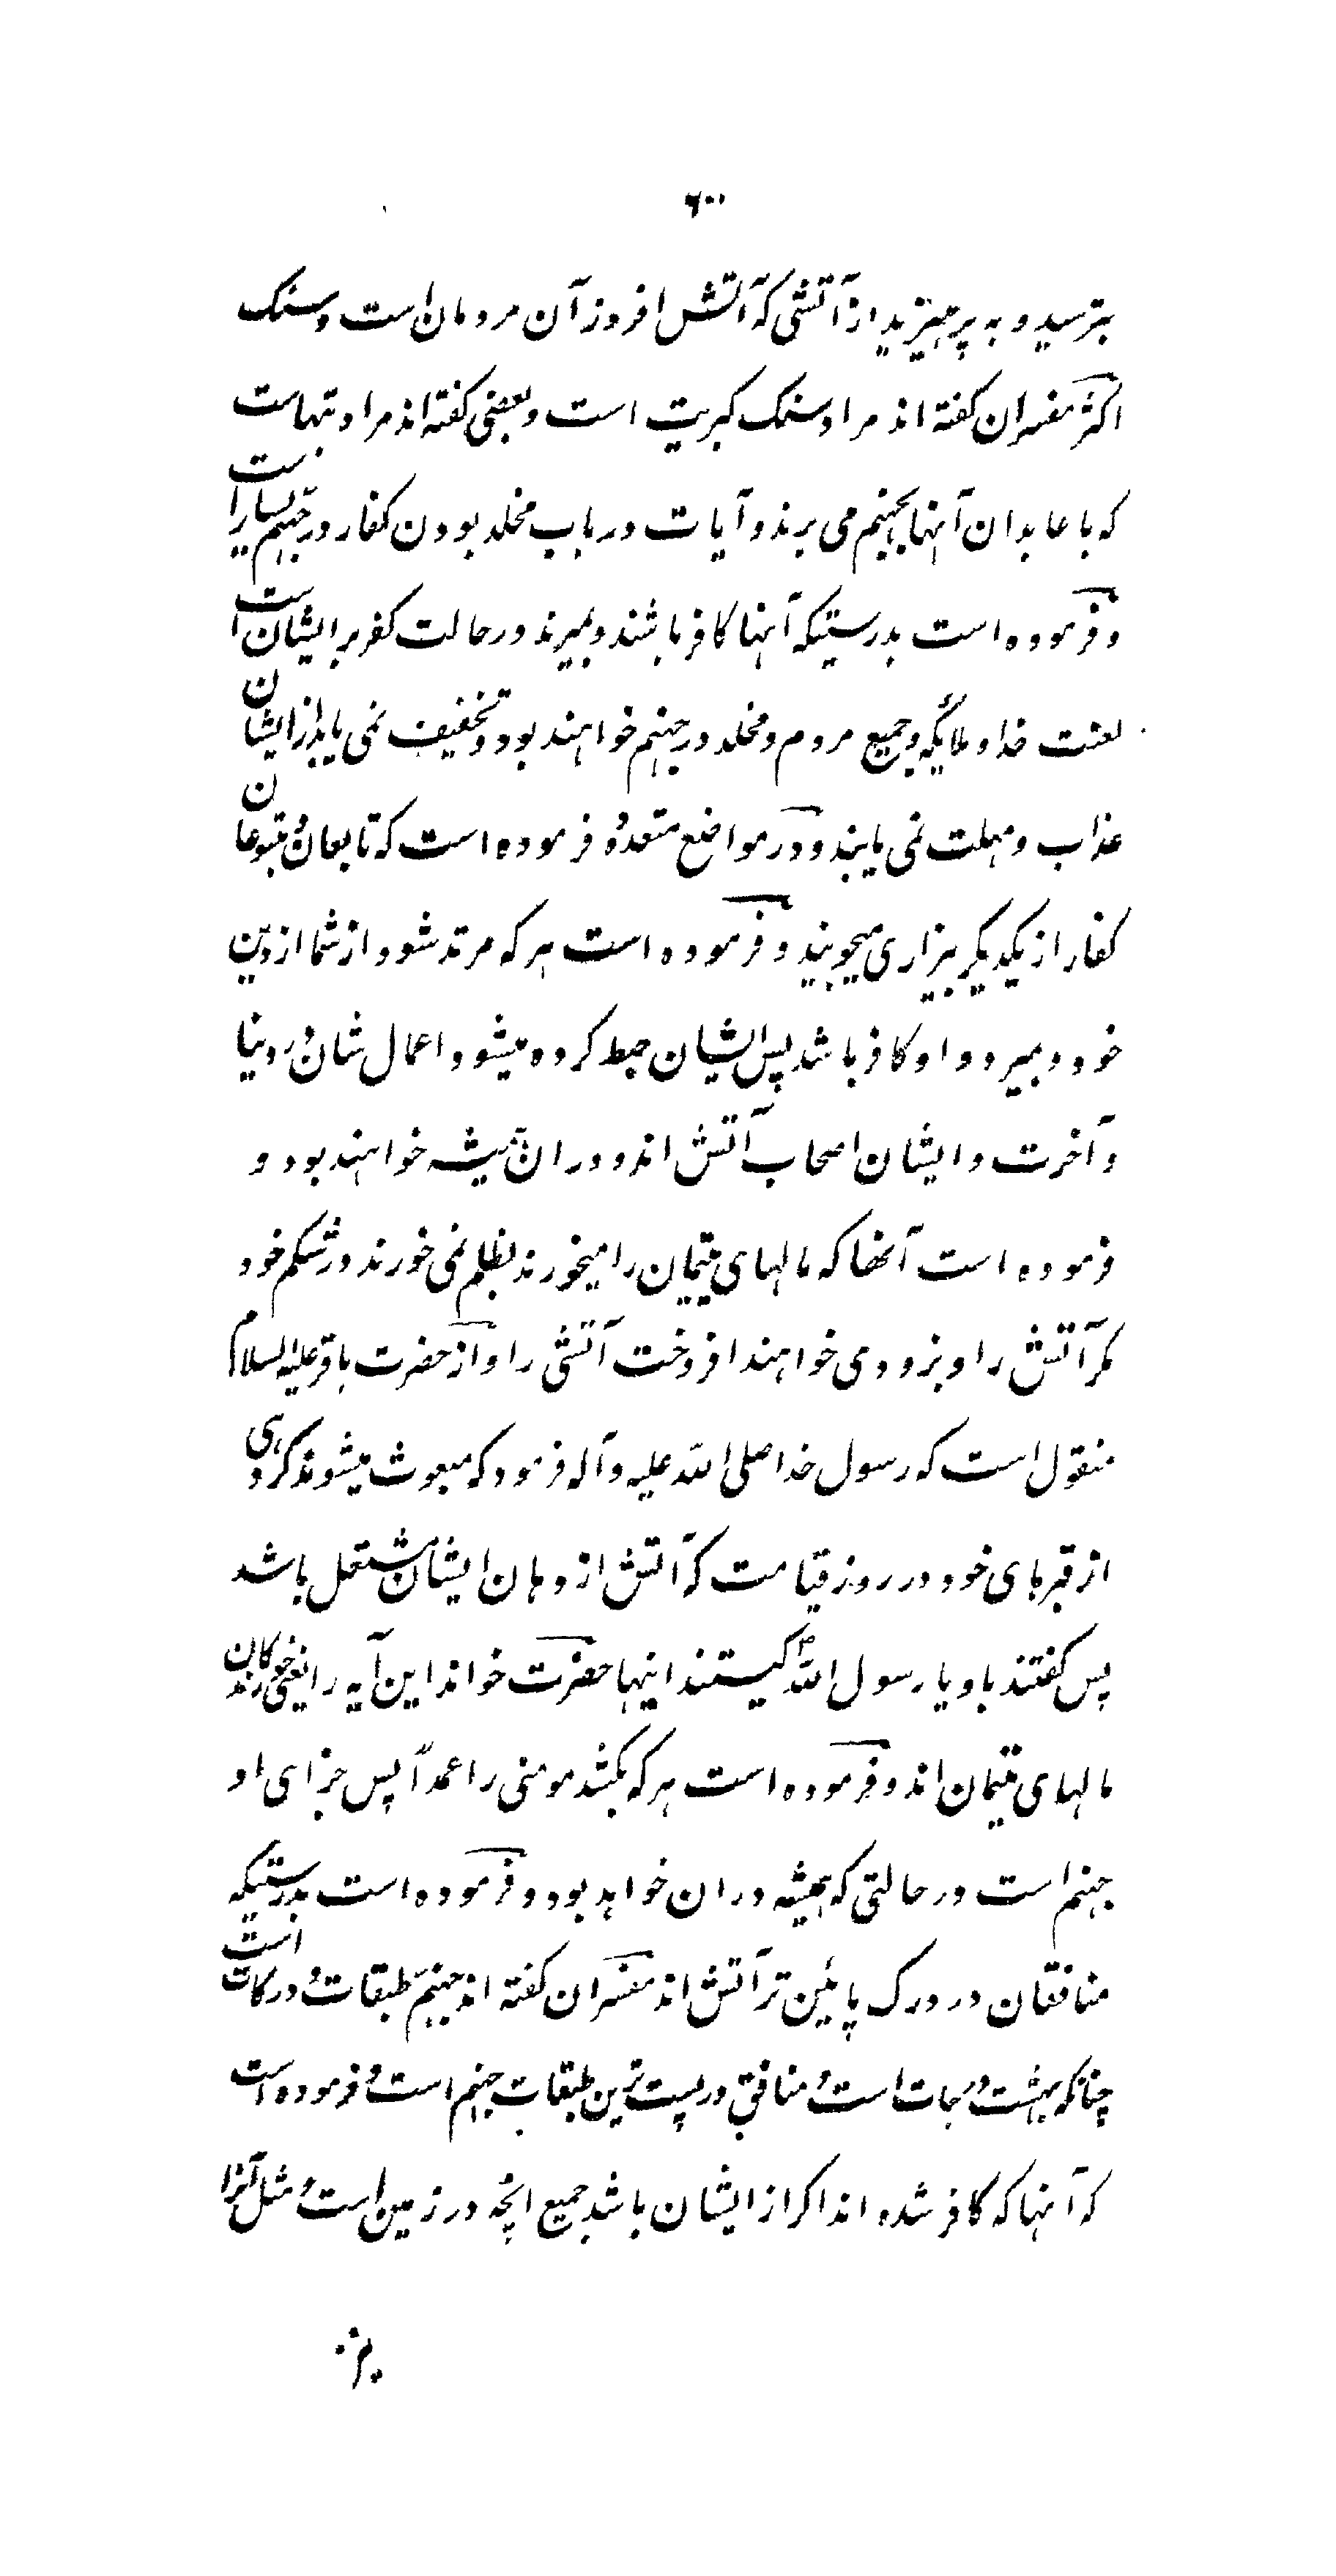 ۶۰۰
بترسید و به پرهیزید از آتشی که آتش افروز آن مردمان است و سنک
اکثر مفسران کفته اند مراد سنک کبریت است و بعضی کفته اند مراد بتهاست
که با عابدان آنها بجهنم می برند و آیات در باب مخلد بودن کفار در جهنم بسیار است
و فرموده است بدرستیکه آنها کافر باشند و بمیرند در حالت کفر بر ایشان است
لعنت خدا و ملائکه و جمیع مردم و مخلد در جهنم خواهند بود و تخفیف نمی یابد از ایشان
عذاب و مهلت نمی یابند و در مواضع متعدده فرموده است که تابعان و متبوعان
کفار از یکدیکر بیزاری میجویند و فرموده است هر که مرتد شود از شما از دین
خود و بمیرد و او کافر باشد پس ایشان حبط کرده میشود اعمال شان در دنیا
و آخرت و ایشان اصحاب آتش اند و در ان همیشه خواهند بود و
فرموده است آنها که مالهای یتیمان را میخورند بظلم نمی خورند در شکم خود
مکر آتش را و بزودی خواهند افروخت آتشی را و از حضرت باقر علیه السلام
منقول است که رسول خدا صلی الله علیه و آله فرمود که مبعوث میشوند کروهی
از قبرهای خود در روز قیامت که آتش از دهان ایشان مشتعل باشد
پس کفتند باو یا رسول الله ص کیستند اینها حضرت خواند این آیه را یعنی خورندکان
مالهای یتیمان اند و فرموده است هر که بکشد مومنی را عمداً پس جزای او
جهنم است در حالتی که همیشه در ان خواهد بود و فرموده است بدرستیکه
منافقان در درک پائین تر آتش اند مفسران کفته اند جهنم طبقات و درکات است
چنانکه بهشت درجات است و منافق در پست ترین طبقات جهنم است و فرموده است
که آنها که کافر شده اند اکر از ایشان باشد جمیع انچه در زمین است و مثل آنرا